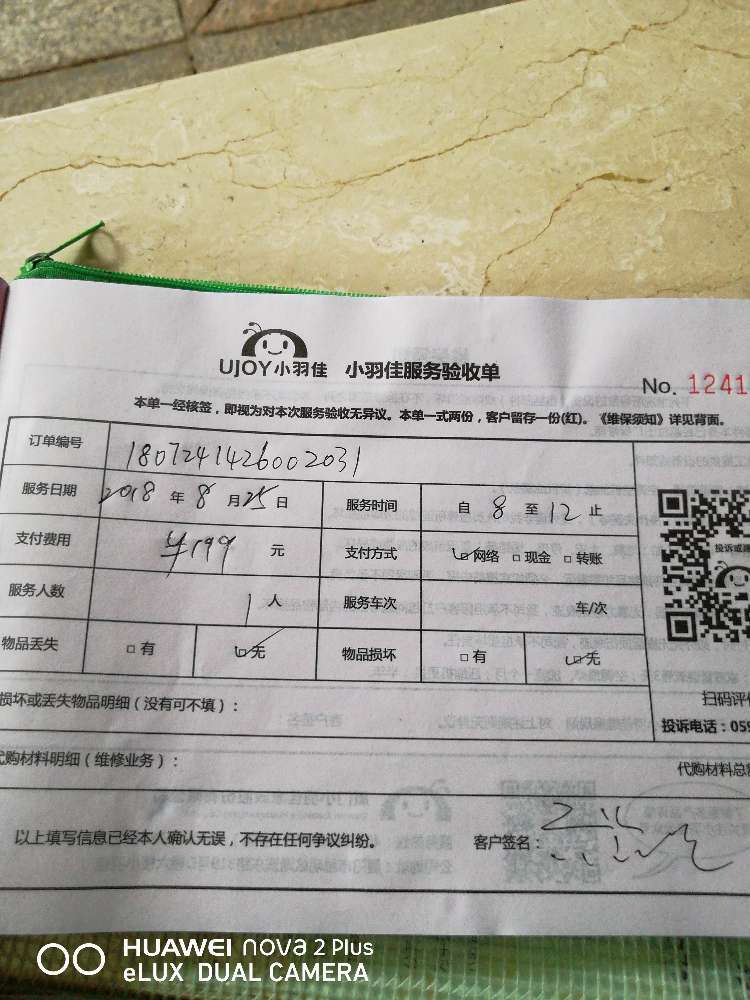 UJOY小羽佳 小羽佳服务验收单
No. 1241
本单一经核签，即视为对本次服务验收无异议。本单一式两份，客户留存一份(红)。《维保须知》详见背面。
订单编号 1807241426002031
服务日期 2018 年 8 月 25 日 服务时间 自 8 至 12 止
支付费用 ¥199 元 支付方式 网络 □ 现金 □ 转账
投诉或建
服务人数 1 人 服务车次 车/次
物品丢失 □ 有 无 物品损坏 □ 有 无
损坏或丢失物品明细（没有可不填）：
扫码评价
投诉电话：059
代购材料明细（维修业务）：
代购材料总额
以上填写信息已经本人确认无误，不存在任何争议纠纷。 客户签名：
HUAWEI nova 2 Plus
eLUX DUAL CAMERA